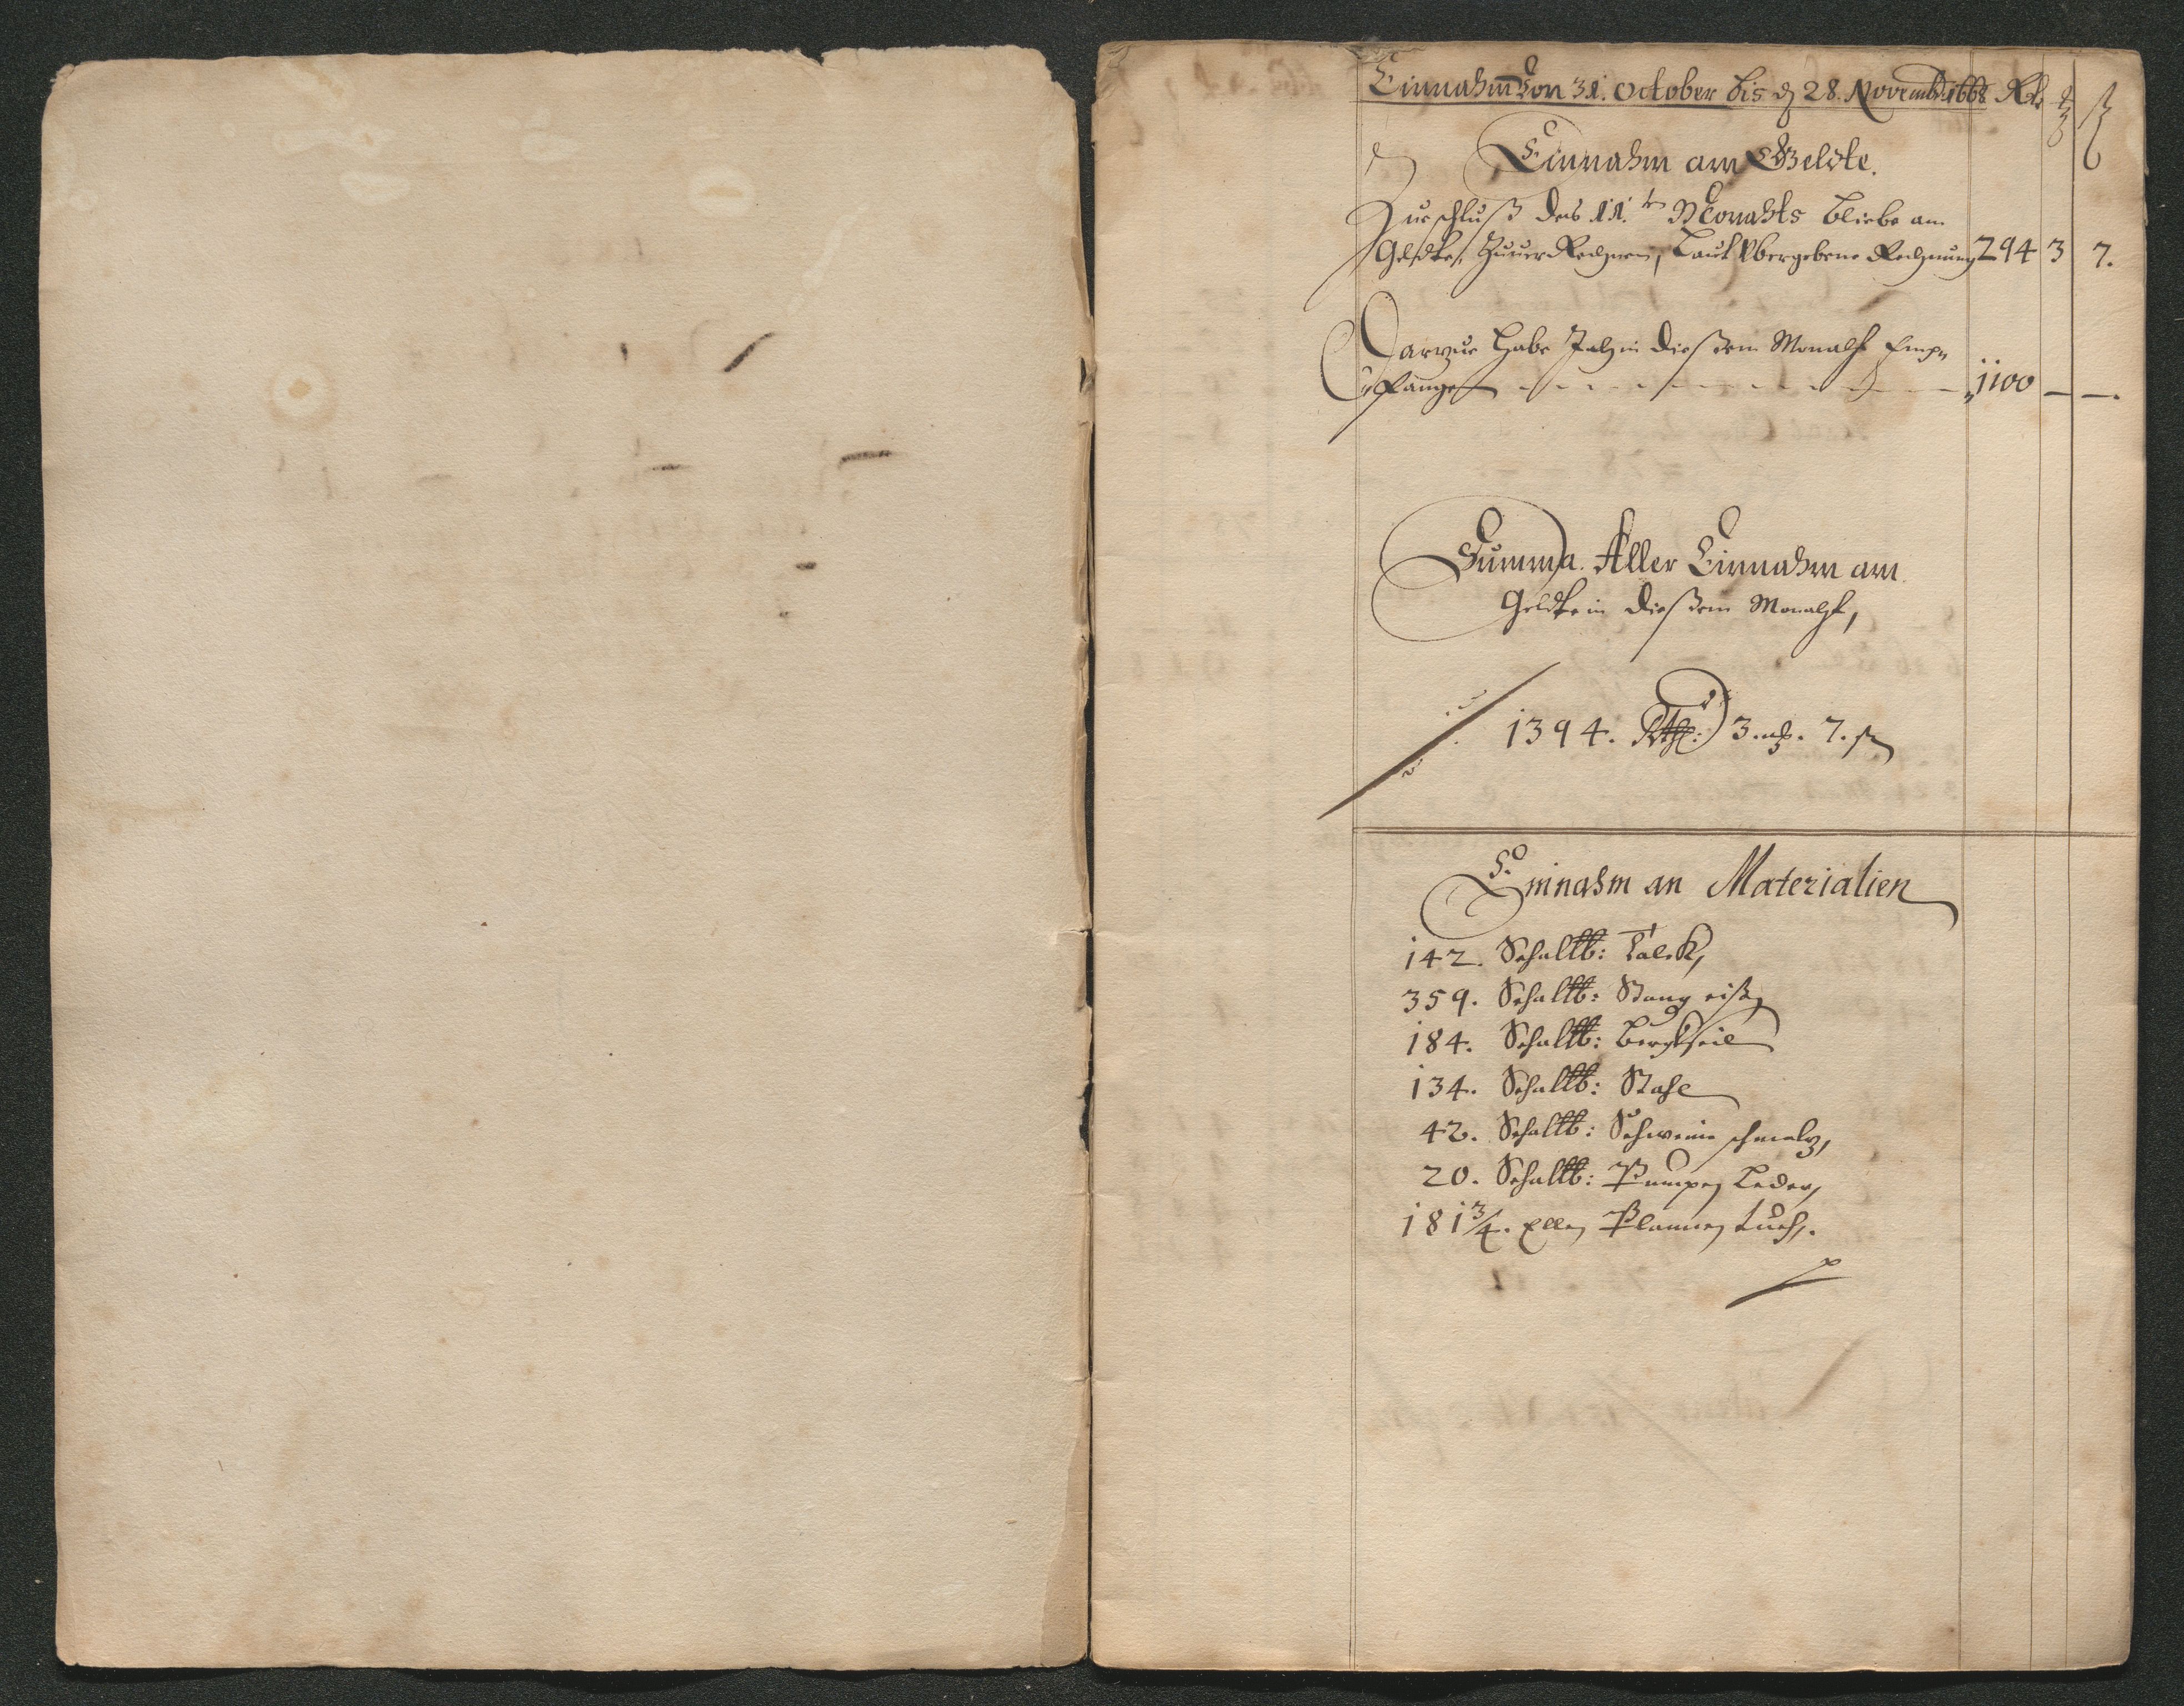 Einnahm Von 31. October bis dẽ 28. Novemb: 1668 Rth. mk ß
Einnahm ann Geldte.
Zue schluß des 11.ten Monahts bliebe am
Geldte, Zuuer Rechnen, Laut Vbergebene Rechnung 294 3 7.
Darzue habe Jch in dießem Monaht Emp„
„fangen „1100 — —.
Summa. Aller Einnahm ann
Geldte in dießem Monaht,
1394. Rthl: 3. mk. 7. ß
Einnahm an Materialien
142. Schallb: Talck,
359. Schallb: Stang eißen
184. Schallb: Bergkseil
134. Schallb: Stahl
42. Schallb: Schweine schmaltz,
20. Schallb: Pumpen Leder,
181 3/4. Ellen Plannen tuch,.